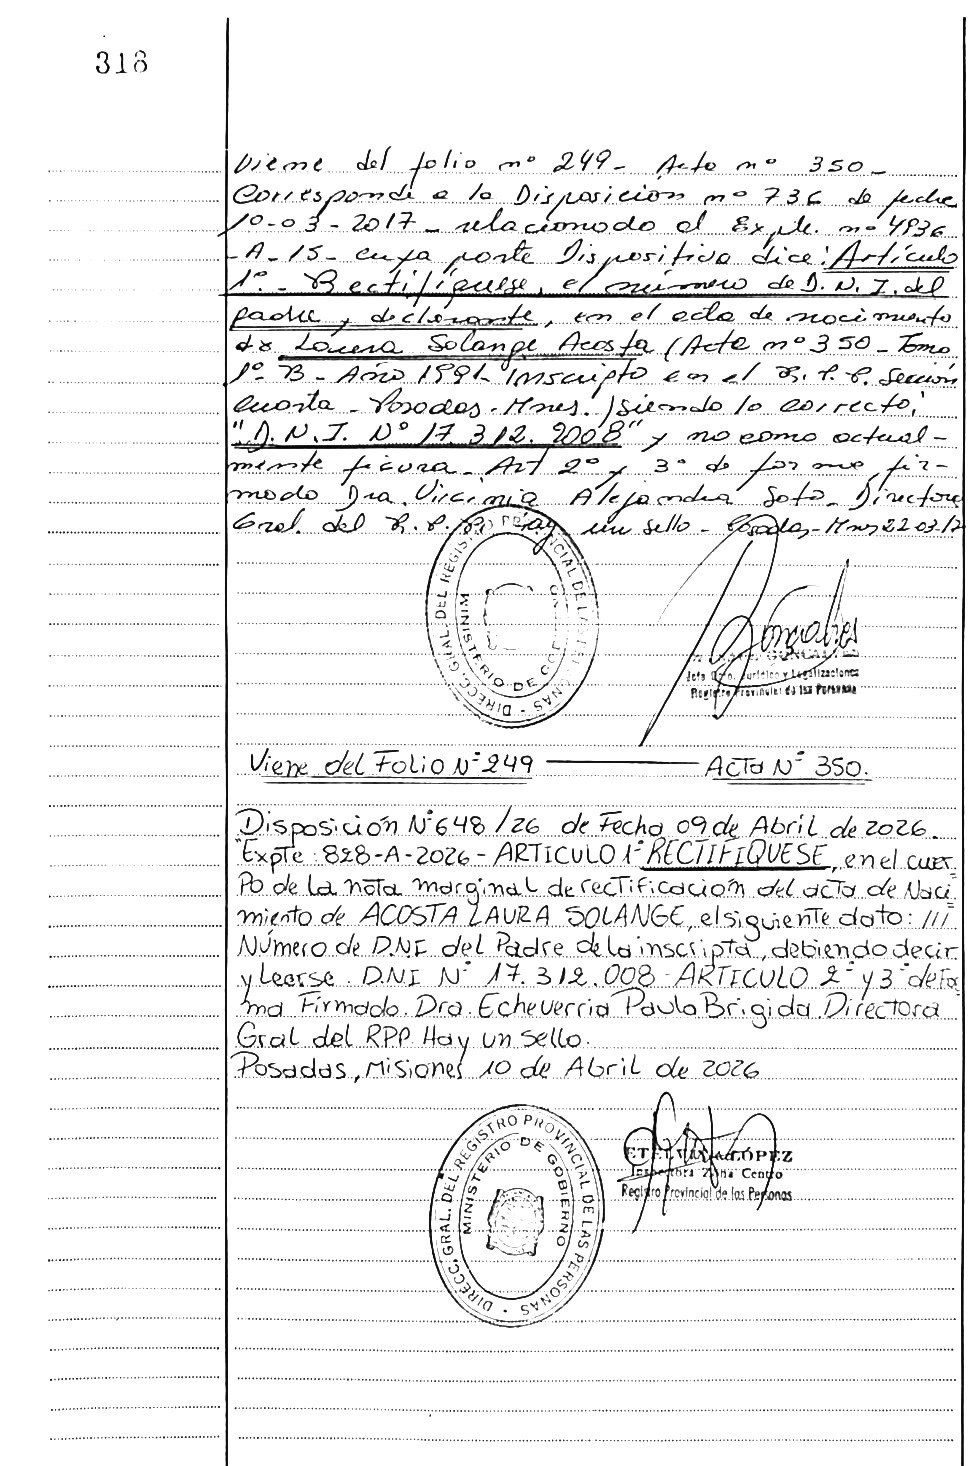 318
Viene del folio nº 249- Acta nº 350-
Corresponde a la Disposición nº 736 de fecha
10-03-2017- relacionado al Expte. nº 4936
-A-15- cuya parte Dispositiva dice: Artículo
1º.- Rectifíquese, el número de D.N.I. del
padre y declarante, en el acta de nacimiento
de Laura Solange Acosta (Acta nº 350-Tomo
1º-B-Año 1991- Inscripto en el R.P.P. Sección
Cuarta-Posadas-Mnes.) siendo lo correcto:
"D.N.I. Nº 17.312.2008" y no como actual-
mente figura. Art 2º y 3º de forma fir-
mado Dra. Virginia Alejandra Soto- Directora
Gral. del R.P.P. Hay un sello- Posadas-Mnes 22-03-17
DIRECC. GRAL. DEL REGISTRO PROVINCIAL DE LAS PERSONAS
MINISTERIO DE
GONCALVES
Jefe Dpto. Jurídico y Legalizaciones
Registro Provincial de las Personas
Viene del Folio Nº 249 ——— Acta Nº 350.
Disposición Nº 648/26 de Fecha 09 de Abril de 2026.
Expte: 828-A-2026- ARTICULO 1º RECTIFIQUESE, en el cuer-
po de la nota marginal de rectificación del acta de Naci-
miento de ACOSTA LAURA SOLANGE, el siguiente dato: ///
Número de DNI del Padre de la inscripta, debiendo decir
y Leerse. DNI Nº 17.312.008-ARTICULO 2º y 3º de For
ma Firmado. Dra. Echeverria Paula Brigida. Directora
Gral del RPP. Hay un sello.
Posadas, Misiones 10 de Abril de 2026
DIRECC. GRAL. DEL REGISTRO PROVINCIAL DE LAS PERSONAS
MINISTERIO DE GOBIERNO
ETELVINA LÓPEZ
Inspectora Zona Centro
Registro Provincial de las Personas